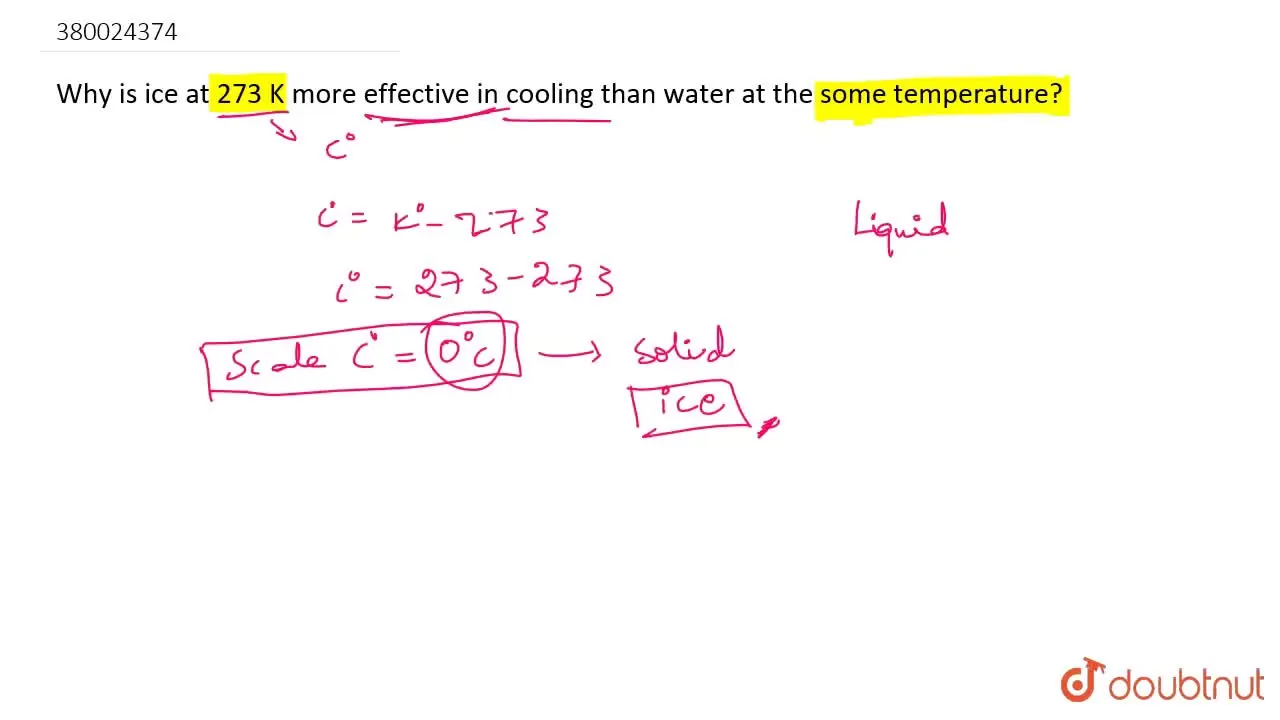 380024374
Why is ice at 273 K more effective in cooling than water at the some temperature?
C°
C° = K° - 273
Liquid
C° = 273 - 273
Scale C° = 0°C → solid
ice
doubtnut